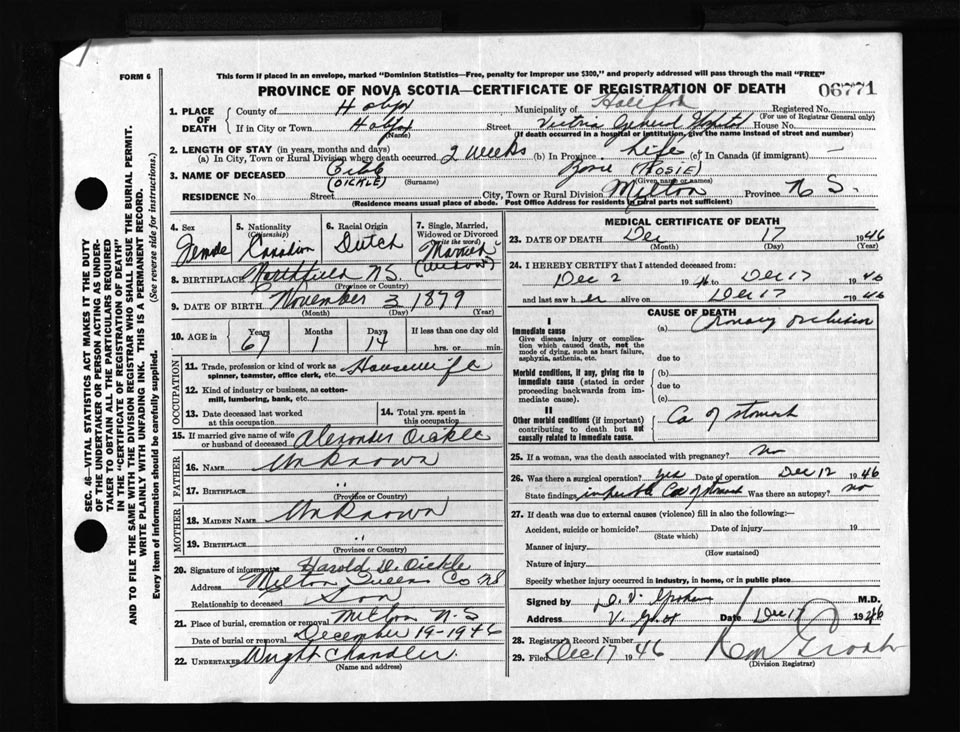 FORM 6
This form if placed in an envelope, marked "Dominion Statistics—Free, penalty for improper use $300," and properly addressed will pass through the mail "FREE"
PROVINCE OF NOVA SCOTIA—CERTIFICATE OF REGISTRATION OF DEATH 06771
1. PLACE OF DEATH County of Halifax Municipality of Halifax Registered No.
(For use of Registrar General only)
If in City or Town Halifax Street Victoria General Hospital House No.
(Name) (If death occurred in a hospital or institution, give the name instead of street and number)
2. LENGTH OF STAY (in years, months and days)
(a) In City, Town or Rural Division where death occurred 2 weeks (b) In Province Life (c) In Canada (if immigrant) —
3. NAME OF DECEASED (OICKLE) Rosie (ROSIE)
(Surname) (Given name or names)
RESIDENCE No. Street City, Town or Rural Division Milton Province N S.
(Residence means usual place of abode. Post Office Address for residents in rural parts not sufficient)
4. Sex Female
5. Nationality (Citizenship) Canadian
6. Racial Origin Dutch
7. Single, Married, Widowed or Divorced (write the word) Married (Widow)
8. BIRTHPLACE Northfield N.S.
(Province or Country)
9. DATE OF BIRTH November 3 1879
(Month) (Day) (Year)
10. AGE in Years 67 Months 1 Days 14 If less than one day old
hrs. or min.
OCCUPATION
11. Trade, profession or kind of work as spinner, teamster, office clerk, etc. Housewife
12. Kind of industry or business, as cotton-mill, lumbering, bank, etc.
13. Date deceased last worked at this occupation
14. Total yrs. spent in this occupation
15. If married give name of wife or husband of deceased Alexander Oickle
FATHER
16. Name Unknown
17. Birthplace "
(Province or Country)
MOTHER
18. Maiden Name Unknown
19. Birthplace "
(Province or Country)
20. Signature of informant Harold D. Oickle
Address Milton Queens Co NS
Relationship to deceased Son
21. Place of burial, cremation or removal Milton N.S
Date of burial or removal December 19-1946
22. Undertaker Wright Chandler
(Name and address)
MEDICAL CERTIFICATE OF DEATH
23. DATE OF DEATH Dec 17 1946
(Month) (Day) (Year)
24. I HEREBY CERTIFY that I attended deceased from:
Dec 2 1946 to Dec 17 1946
and last saw her alive on Dec 17 1946
CAUSE OF DEATH
I
Immediate cause
Give disease, injury or complication which caused death, not the mode of dying, such as heart failure, asphyxia, asthenia, etc.
(a) Coronary occlusion
due to
Morbid conditions, if any, giving rise to immediate cause (stated in order proceeding backwards from immediate cause).
(b)
due to
(c)
II
Other morbid conditions (if important) contributing to death but not causally related to immediate cause.
Ca of stomach
25. If a woman, was the death associated with pregnancy? no
26. Was there a surgical operation? yes Date of operation Dec 12 1946
State findings inoperable Ca of stomach Was there an autopsy? no
27. If death was due to external causes (violence) fill in also the following:—
Accident, suicide or homicide? Date of injury 19
(State which)
Manner of injury
(How sustained)
Nature of injury
Specify whether injury occurred in industry, in home, or in public place
Signed by M.D.
Address V. G. H. Date Dec 17 1946
28. Registrar's Record Number
29. Filed Dec 17 1946
(Division Registrar)
SEC. 46—VITAL STATISTICS ACT MAKES IT THE DUTY
OF THE UNDERTAKER OR PERSON ACTING AS UNDER-
TAKER TO OBTAIN ALL THE PARTICULARS REQUIRED
IN THE "CERTIFICATE OF REGISTRATION OF DEATH"
AND TO FILE THE SAME WITH THE DIVISION REGISTRAR WHO SHALL ISSUE THE BURIAL PERMIT.
WRITE PLAINLY WITH UNFADING INK. THIS IS A PERMANENT RECORD.
Every item of information should be carefully supplied. (See reverse side for instructions.)